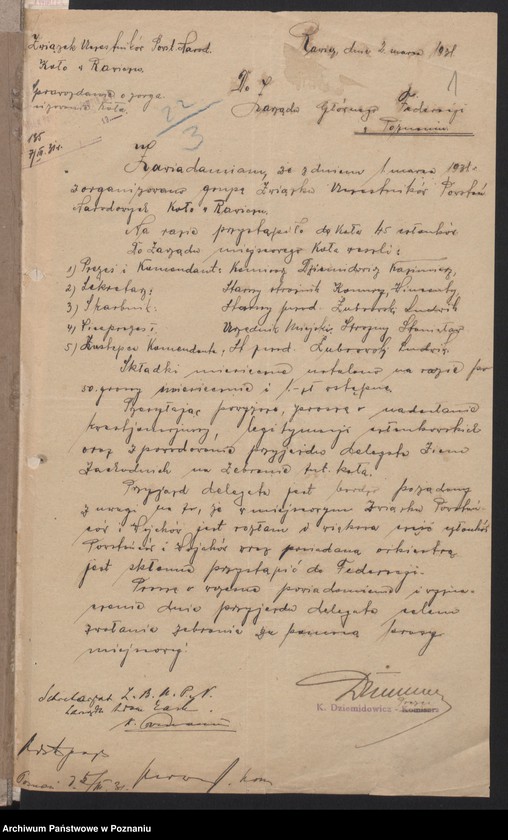 Związek Uczestników Powst. Narod.
Koło w Rawiczu
Rawicz, dnia 2. marca 1931
1
Sprawozdanie o zorga
nizowaniu Koła.
Do
Zarządu Głównego Federacji
w Poznaniu
22
3
Zawiadamiamy, że z dniem 1 marca 1931 r.
zorganizowano grupę Związku Uczestników Powstań
Narodowych Koło w Rawiczu.
Na razie przystąpiło do Koła 45 członków
Do Zarządu miejscowego Koła weszli:
1) Prezes i Komendant: Komisarz Dziemidowicz Kazimierz,
2) Sekretarz: Starszy strażnik Wincenty
3) Skarbnik: Starszy przod. Ludwik
4) Viceprezes: Urzędnik Miejski, Stanisław
5) Zastępca Komendanta: St. przod. Ludwik
Składki miesięczne ustalono na razie po
50 groszy miesięcznie i 1-zł wstępne.
Przesyłając powyższe, proszę o nadesłanie
legitymacji członkowskich
oraz spowodowanie przyjazdu delegata Ziem
Zachodnich na Zebranie tut. koła.
Przyjazd delegata jest bardzo pożądany
z uwagi na to, że w miejscowym Związku Powstań-
ców i Wojaków jest rozłam i większa część członków
Powstańców i Wojaków oraz posiadana orkiestra
jest skłonna przystąpić do Federacji.
Proszę o wczesne powiadomienie i wyzna-
czenie dnia przyjazdu delegata celem
zwołania zebrania za pomocą prasy
miejscowej.
Prezes
K. Dziemidowicz - Komisarz
Sekretarjat
Archiwum Państwowe w Poznaniu